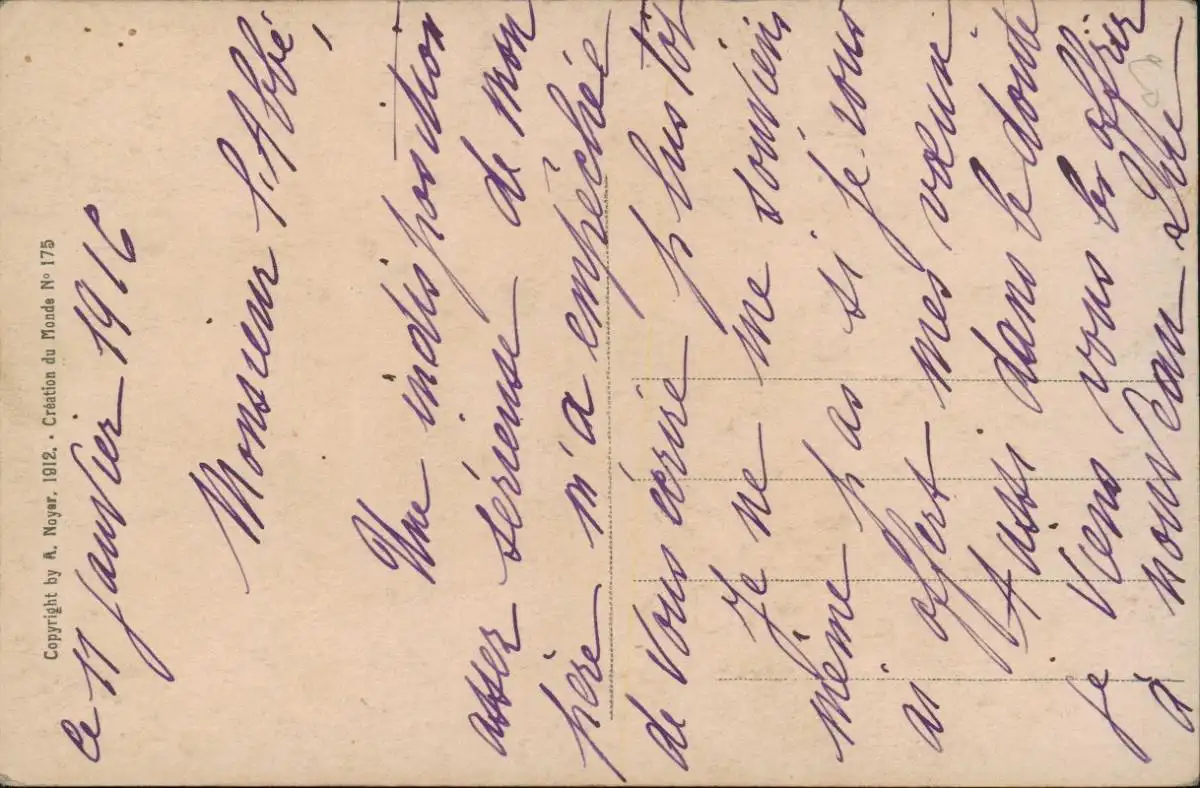 Copyright by A. Noyer, 1912. · Création du Monde Nº 175
Ce 11 Janvier 1916
Monsieur l'Abbé,
Une indisposition
assez sérieuse de mon
père m'a empêchée
de vous écrire plus tôt
Je ne me souviens
même pas si je vous
ai offert mes vœux
Aussi dans le doute
je viens vous les offrir
à nouveau